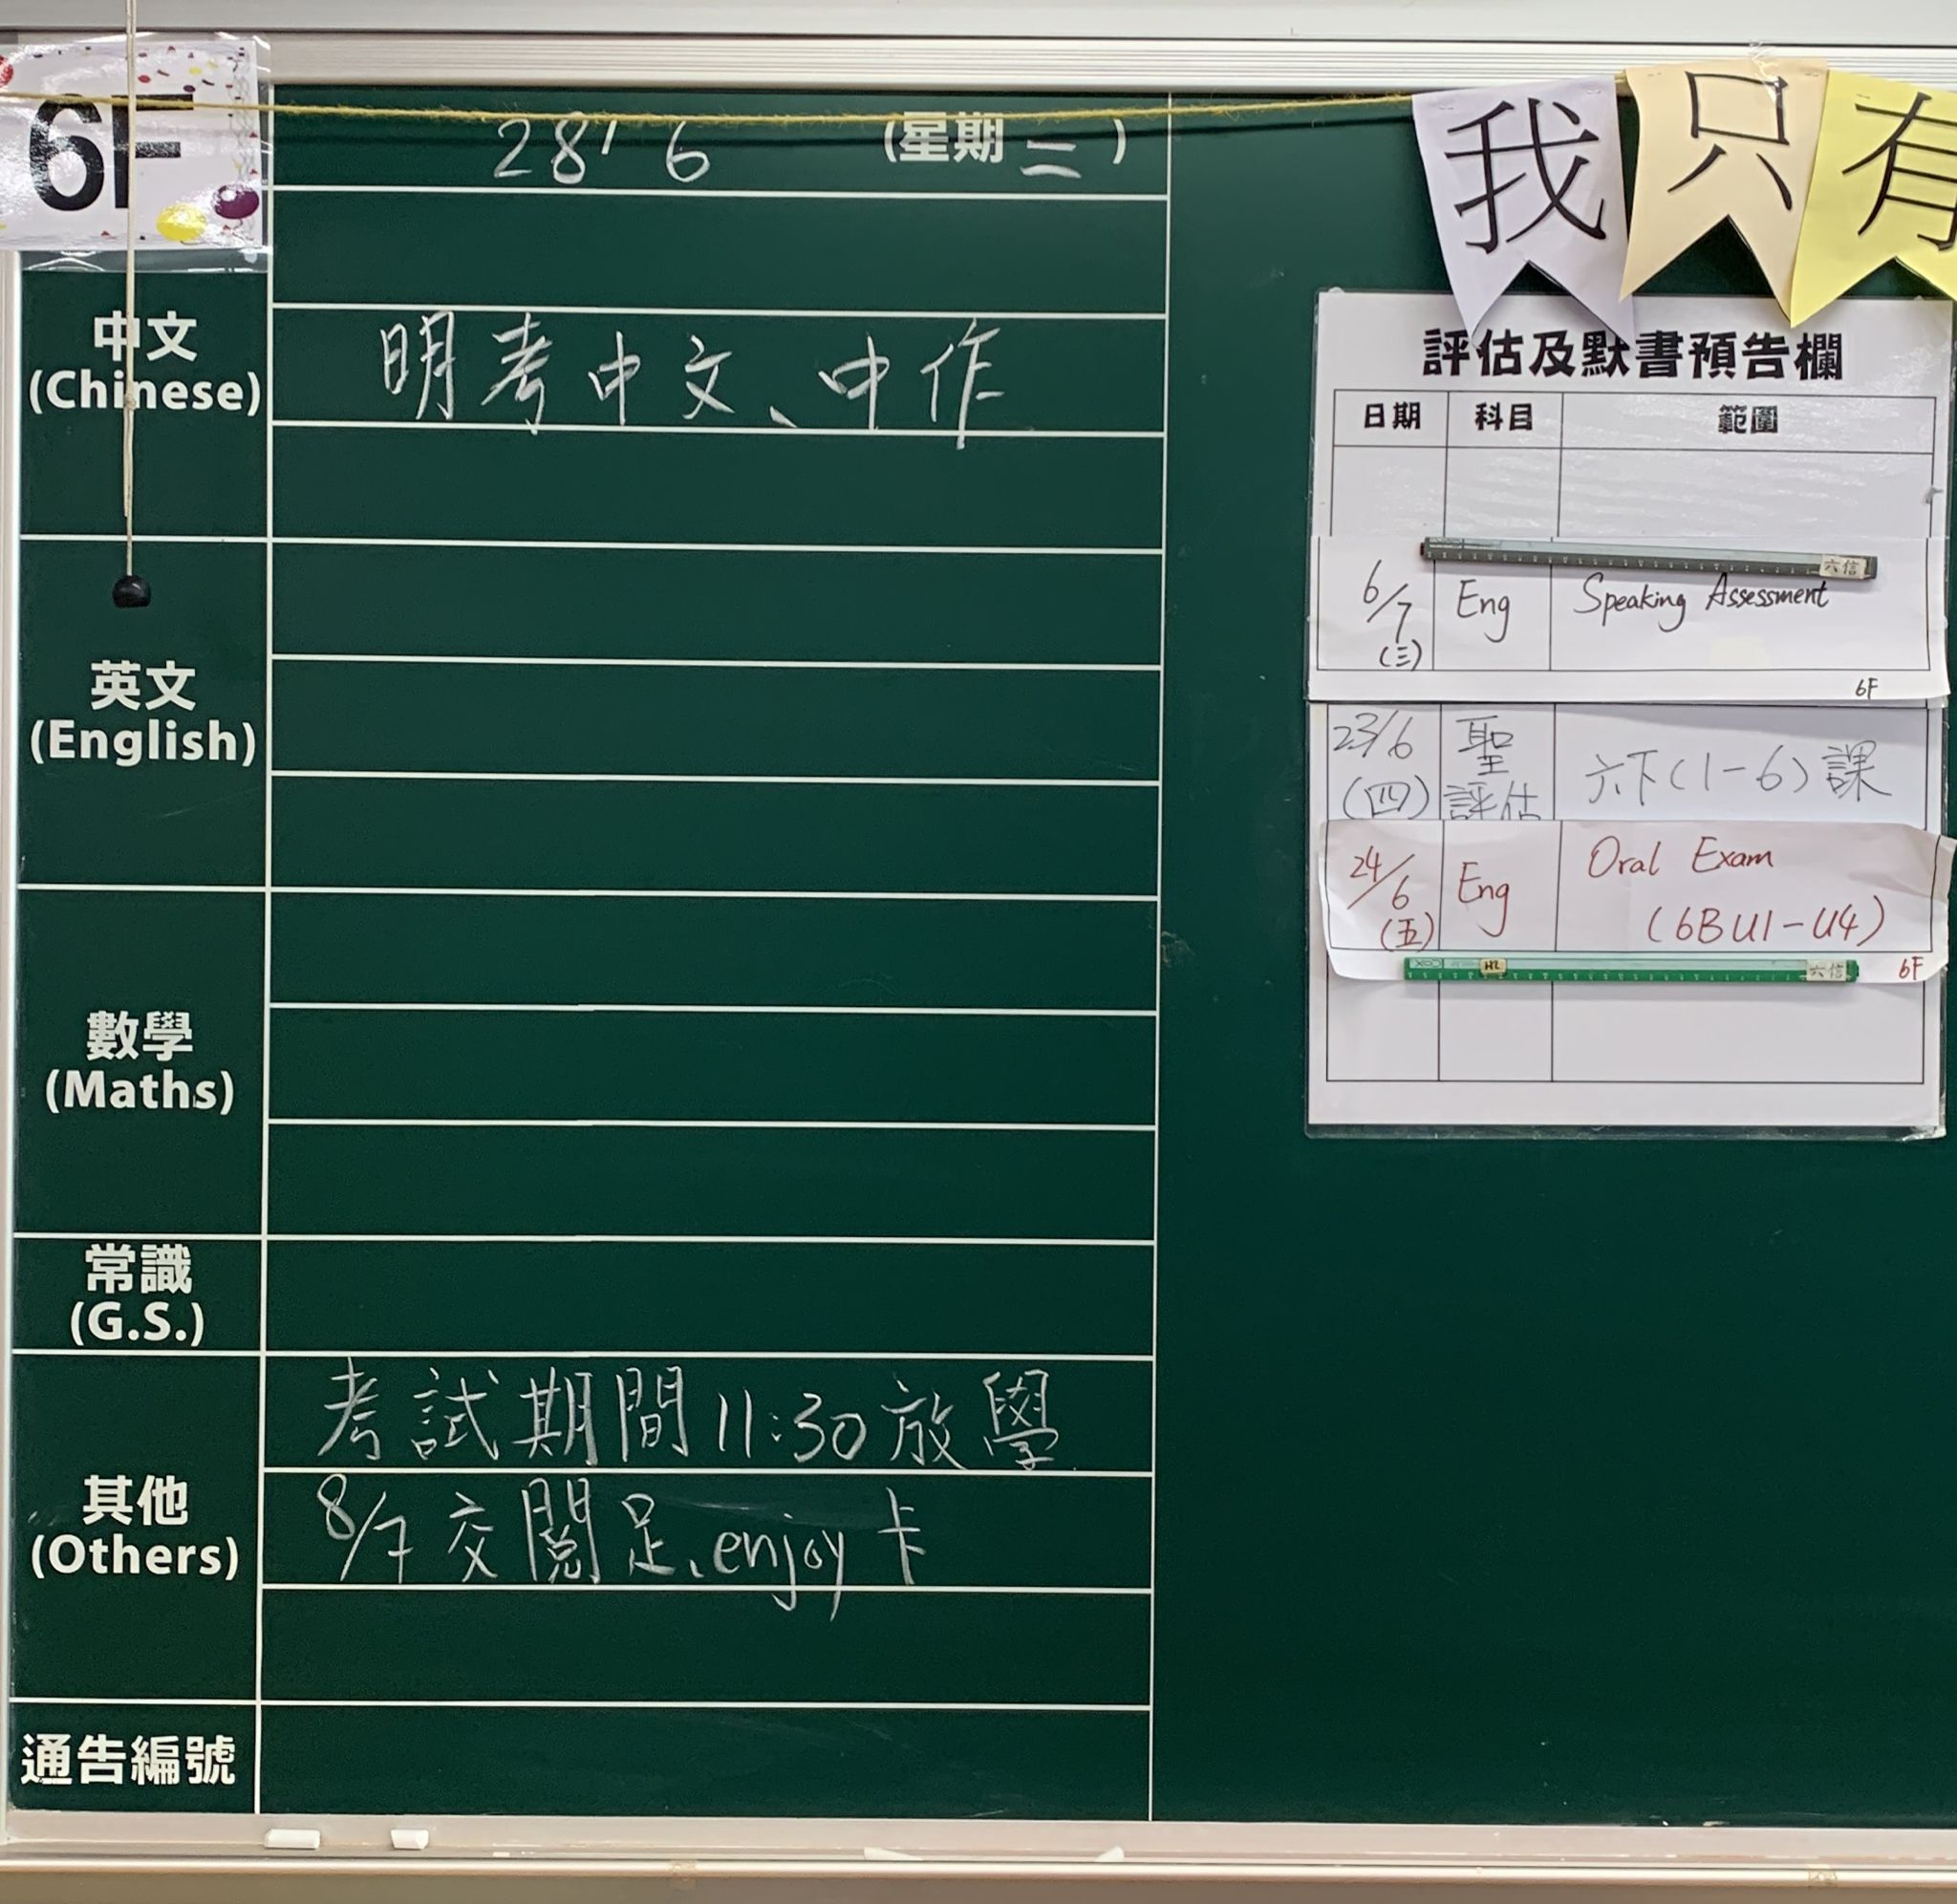 6F
28/6 (星期二)
我只有
中文
(Chinese)
明考中文、中作
英文
(English)
數學
(Maths)
常識
(G.S.)
其他
(Others)
考試期間11:30放學
8/7交閱足、enjoy卡
通告編號
評估及默書預告欄
日期 科目 範圍
六信
6/7 (三) Eng Speaking Assessment
6F
23/6 (四) 聖評估 六下(1-6)課
24/6 (五) Eng Oral Exam
(6B U1-U4)
六信
6F